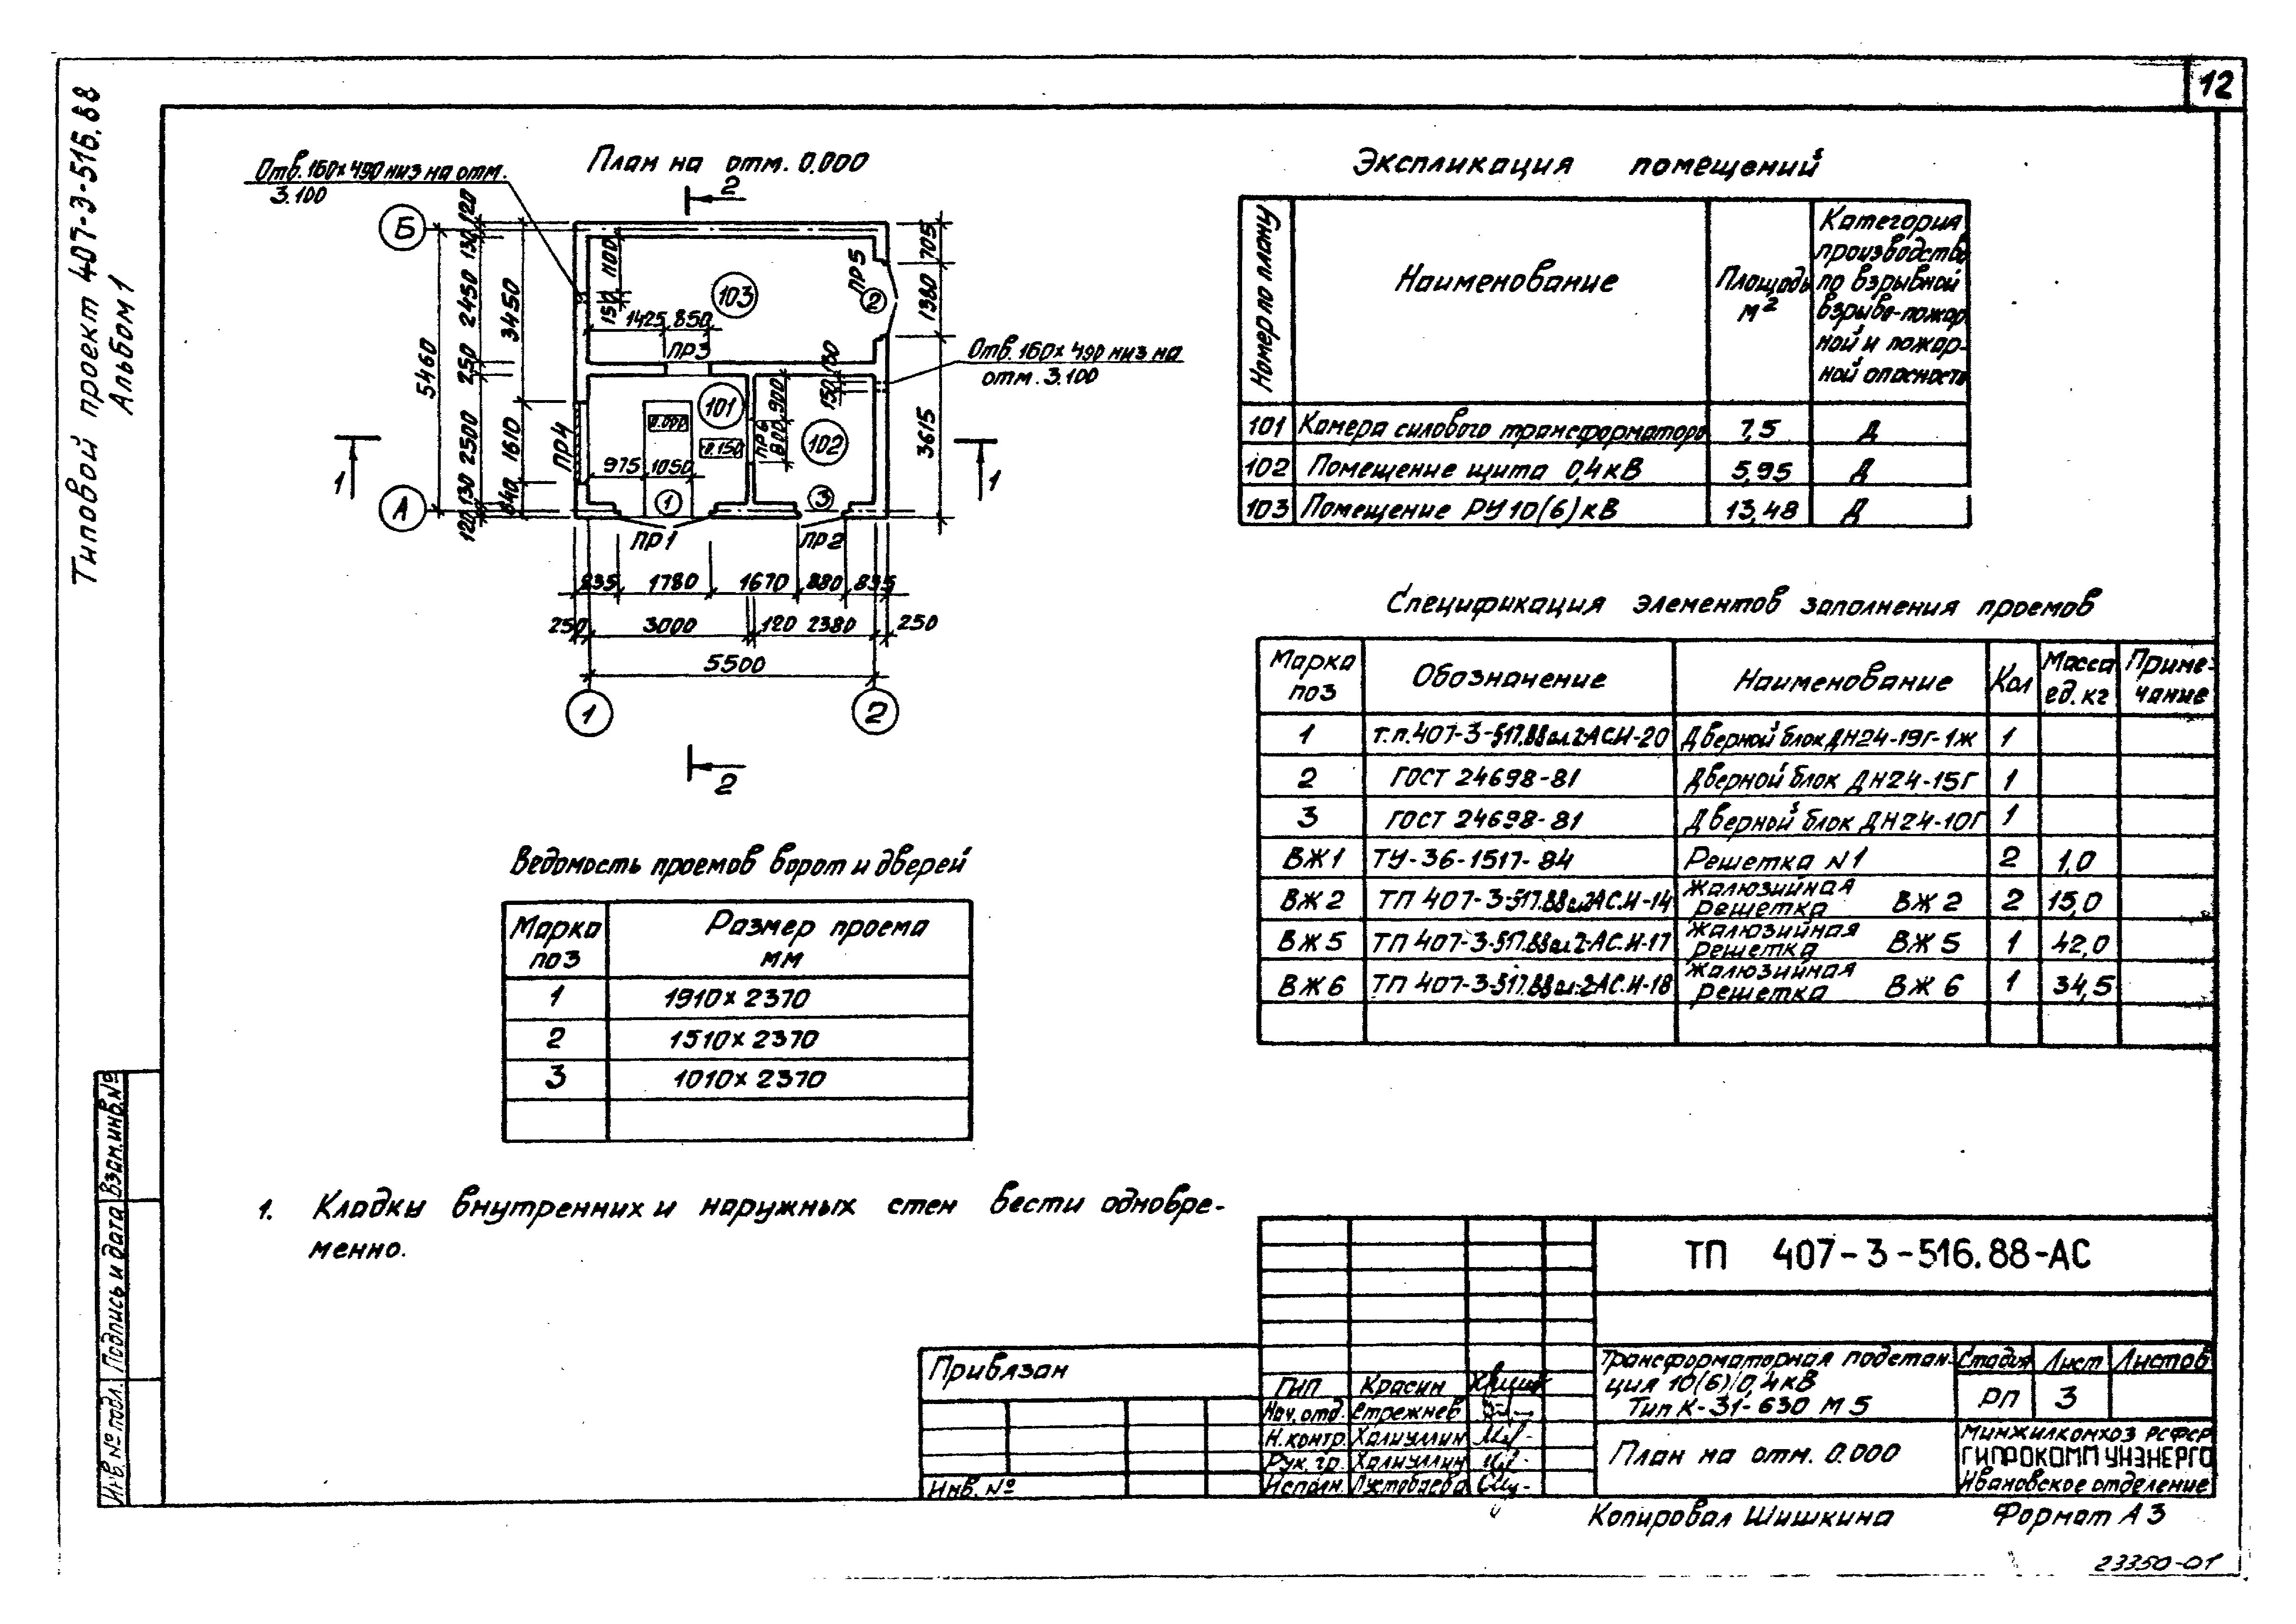 12
Типовой проект 407-3-516.88
Альбом 1
План на отм. 0.000
Отв. 160х490 низ на отм.
3.100
2
Б
А
120
130
2450
250
2500
130
120
5460
3450
1610
840
1100
150
1425 850
ПР3
ПР5
103
2
705
1380
3615
Отв. 160х490 низ на
отм. 3.100
101
102
0.000
0.150
ПР4
ПР6
800 900
150
975 1050
1
3
ПР1
ПР2
1
1
835 1780 1670 880 835
250 3000 120 2380 250
5500
1
2
2
Экспликация помещений
Номер по плану
Наименование
Площадь
м²
Категория
производства
по взрывной
взрыво-пожар
ной и пожар-
ной опасности
101 Камера силового трансформатора 7,5 Д
102 Помещение щита 0,4кВ 5,95 Д
103 Помещение РУ 10(6)кВ 13,48 Д
Спецификация элементов заполнения проемов
Марка
поз
Обозначение
Наименование
Кол
Масса
ед. кг
Приме-
чание
1 т.п.407-3-517.88 ал.2-АС.И-20 Дверной блок ДН24-19г-1ж 1
2 ГОСТ 24698-81 Дверной блок ДН24-15Г 1
3 ГОСТ 24698-81 Дверной блок ДН24-10Г 1
ВЖ1 ТУ-36-1517-84 Решетка N1 2 1,0
ВЖ2 ТП 407-3-517.88 ал.2-АС.И-14 Жалюзийная решетка ВЖ2 2 15,0
ВЖ5 ТП 407-3-517.88 ал.2-АС.И-17 Жалюзийная решетка ВЖ5 1 42,0
ВЖ6 ТП 407-3-517.88 ал.2-АС.И-18 Жалюзийная решетка ВЖ6 1 34,5
Ведомость проемов ворот и дверей
Марка
поз
Размер проема
мм
1 1910х2370
2 1510х2370
3 1010х2370
1. Кладку внутренних и наружных стен вести одновре-
менно.
Взам.инв.№
Подпись и дата
Инв.№ подл.
Привязан
Инв. №
ГИП Красин
Нач. отд. Стрежнев
Н. контр. Халиуллин
Рук. гр. Халиуллин
Исполн.
ТП 407-3-516.88-АС
Трансформаторная подстан-
ция 10(6)/0,4кВ
Тип К-31-630 М5
Стадия Лист Листов
РП 3
План на отм. 0.000
Минжилкомхоз РСФСР
ГИПРОКОММУНЭНЕРГО
Ивановское отделение
Копировал Шишкина
Формат А3
23350-01